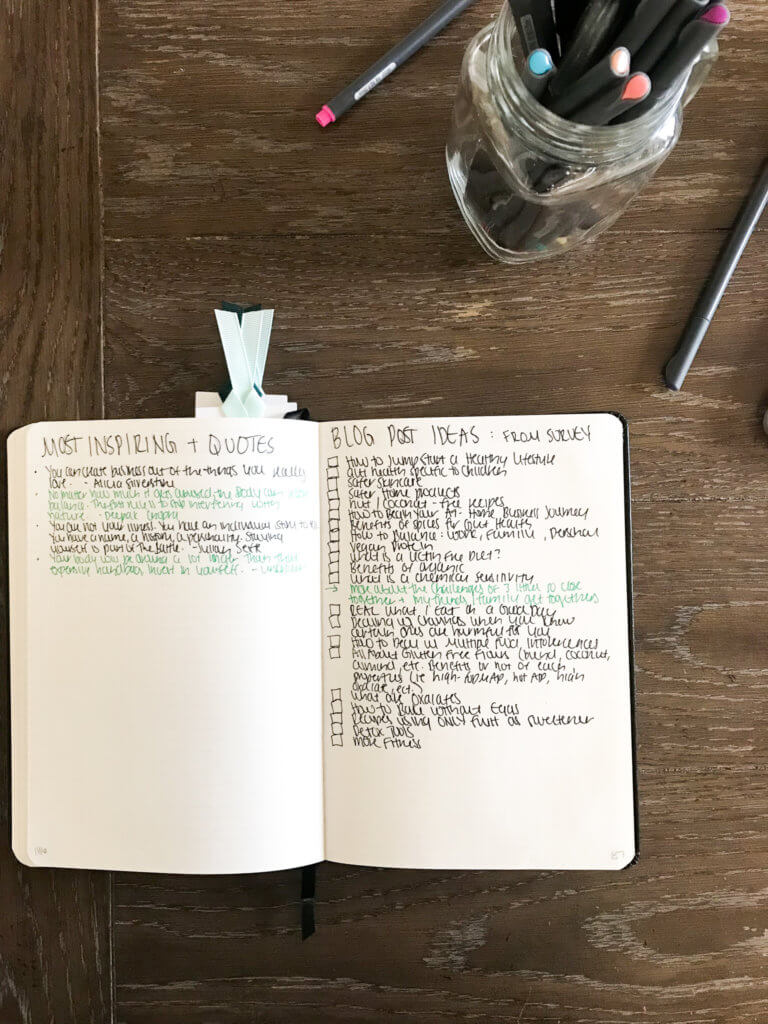 MOST INSPIRING + QUOTES
• You can create business out of the things you really
love. - Alicia Silverstone
• No matter how much it gets abused, the body can
balance. The first rule is to stop interfering with
nature. - Deepak Chopra
• You are not your illness. You have an individual story to
You have a name, a history, a personality. Staying
yourself is part of the battle. - Julian Seifter
• Your body will be around a lot longer than that
expensive handbag. Invest in yourself. -
BLOG POST IDEAS : FROM SURVEY
How to Jump Start a Healthy Lifestyle
Gut health specific to Children
Safer Skincare
Safer Home products
Nut / Coconut - free recipes
How to Begin Your At-Home Business Journey
Benefits of Spices for Gut Health
How to Balance : Work, Family, Personal
Vegan Protein
What is a Lectin Free Diet?
Benefits of Organic
What is a chemical sensitivity
→ More about the Challenges of 3 littles so close
together + my friends / family get togethers
REAL What I Eat on a Good Day
Dealing w/ Crannies when you know
certain ones are harmful for you
How to Deal w/ Multiple Food Intolerances
All About Gluten Free Flours (blend, coconut,
almond, etc. Benefits or not of each,
properties (ie high- FODMAP, not AIP, high
oxalate, ect.)
What are Oxalates
How to Bake Without Eggs
Recipes using ONLY fruit as sweetener
Detox Tools
More Fitness
157